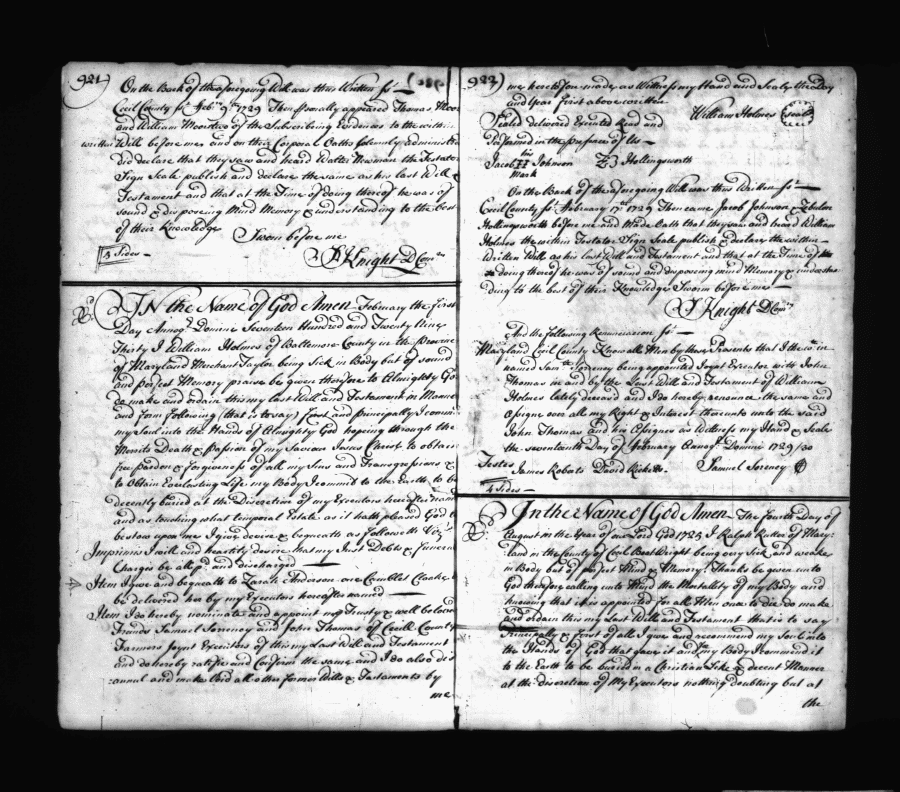 921)
On the Back of the aforegoing Will was thus Written fs.t —
Cecil County fs.t Feb.ry 9th 1729 Then p'sonally appeared Thomas Moor
and William Moor two of the Subscribing Evidences to the within
written Will before me and on their Corporal Oaths Solemnly administred
did declare that they saw and heard Walter Newman the Testator
Sign Seale publish and declare the same as his last Will &
Testament and that at the Time of doing thereof he was of
sound & disposeing Mind Memory & understanding to the best
of their Knowledge Sworn before me
S Knight D Com.ry
3 Sides —
IN the Name of God Amen February the first
Day Annoq Domini Seventeen Hundred and Twenty Nine
Thirty I William Holmes of Baltemore County in the Province
of Maryland Merchant Taylor being Sick in Body but of sound
and perfect Memory praise be given therefore to Almighty God
do make and ordain this my last Will and Testament in Manner
and form following (that is to say) first and principally I commit
my Soul into the Hands of Almighty God hopeing through the
Merits Death & passion of my Saviour Jesus Christ to obtain
free pardon & forgiveness of all my Sins and Transgressions &
to Obtain Everlasting Life my Body I commit to the Earth to be
decently buried at the Discretion of my Executors hereafter named
and as touching what temporal Estate as it hath pleased God to
bestow upon me I give devise & bequeath as followeth Viz.t
Imprimis I will and heartily desire that my Just Debts & funeral
Charges be all p.d and discharged —
Item I give and bequeath to Sarah Anderson one Camblet Cloake to
be delivered her by my Executors hereafter named —
Item I do hereby nominate and appoint my Trusty & well beloved
Friends Samuel Soreney and John Thomas of Cecill County
Farmers Joynt Executors of this my Last Will and Testament
and do hereby ratifie and Confirm the same and I do also dis
annul and make Void all other former Wills & Testaments by
me
922)
me heretofore made as Witness my Hand and Seale the Day
and Year first above written
William Holmes (seale)
Sealed delivered Executed Read and
Performed in the presence of Us —
his
Jacob II Johnson Z H Hollingsworth
Mark
On the Back of the aforegoing Will was thus Written fs.t —
Cecil County fs.t February 17th 1729 Then came Jacob Johnson & Zebulon
Hollingsworth before me and Made Oath that they saw and heard William
Holmes the within Testator Sign Seale publish & declare the within
Written Will as his last Will and Testament and that at the Time of his
doing thereof he was of sound and disposing mind Memory & understan
ding to the best of their Knowledge Sworn before me —
S Knight D Com.ry
And the following Renunciacion fs.t —
Maryland Cecil County Know all Men by these Presents that I the w.th in
named Sam.ll Soreney being appointed Joynt Executor with John
Thomas in and by the Last Will and Testament of William
Holmes lately deceased and I do hereby renounce the same and
Assigne over all my Right & Interest thereunto unto the said
John Thomas and his Assignes as Witness my Hand & Seale
the seventeenth Day of February Annoq Domini 1729/30
Testes
James Robats David Ricketts Samuel Soreney
4 Sides —
In the Name of God Amen The fourth Day of
August in the Year of our Lord God 1725 I Ralph Rutter of Mary:
land in the County of Cecil Boat Wright being very Sick and weake
in Body but of perfect Mind & Memory Thanks be given unto
God therefore calling unto Mind the Mortallity of my Body and
knowing that it is appointed for all Men once to die do make
and ordain this my Last Will and Testament that is to say
Principally & first of all I give and recommend my Soul into
the Hands of God that gave it and for my Body I commend it
to the Earth to be buried in a Christian Like & decent Manner
at the discretion of My Executors nothing doubting but at
the